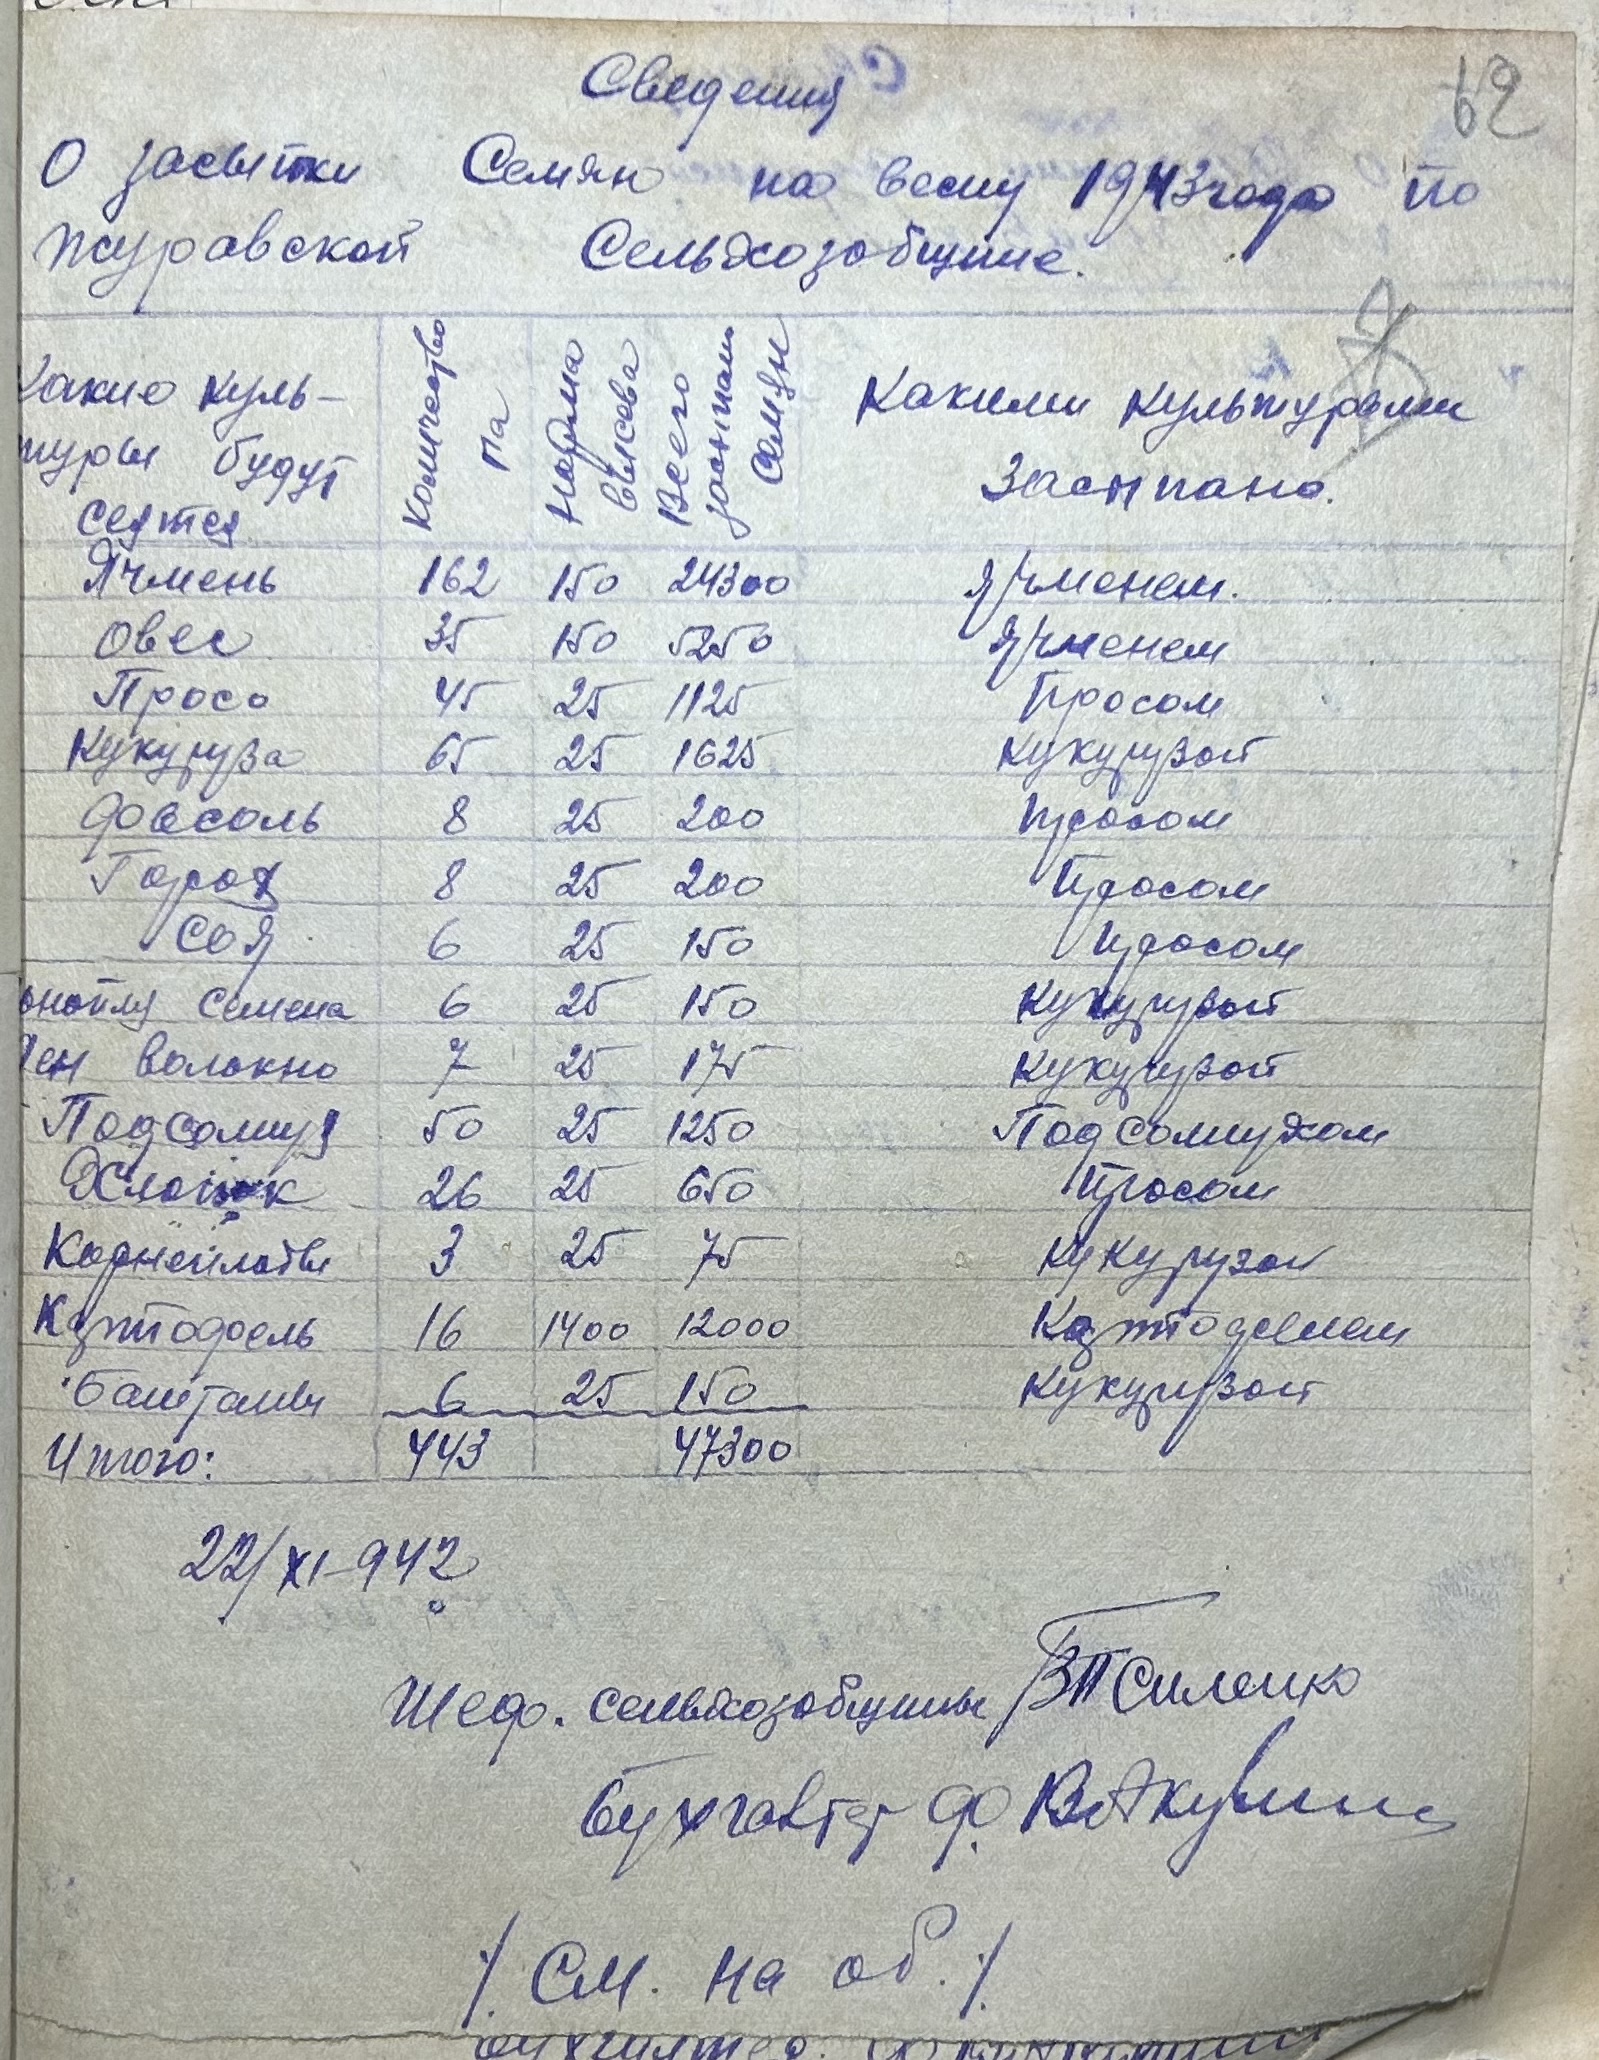 62
Сведения
О засыпки Семян на весну 1943 года по
Журавской Сельхозобщине.
Какие куль-
туры будут
сеятся
Количество
га
Норма
высева
Всего
семян
Какими культурами
Засыпано.
Ячмень 162 150 24300 Ячменем.
Овес 35 150 5250 Ячменем
Просо 45 25 1125 Просом
Кукуруза 65 25 1625 Кукурузой
Фасоль 8 25 200 Просом
Горох 8 25 200 Просом
Соя 6 25 150 Просом
онопля семена 6 25 150 Кукурузой
Лен волокно 7 25 175 Кукурузой
Подсолнух 50 25 1250 Подсолнухом
Хлопок 26 25 650 Просом
Корнеплоды 3 25 75 Кукурузой
Картофель 16 1400 12000 Картофелем
Баштаны 6 25 150 Кукурузой
Итого: 443 47300
22/XI-942
Шеф. сельхозобщины ВПСиленко
Бухгалтер
/ См. на об. /